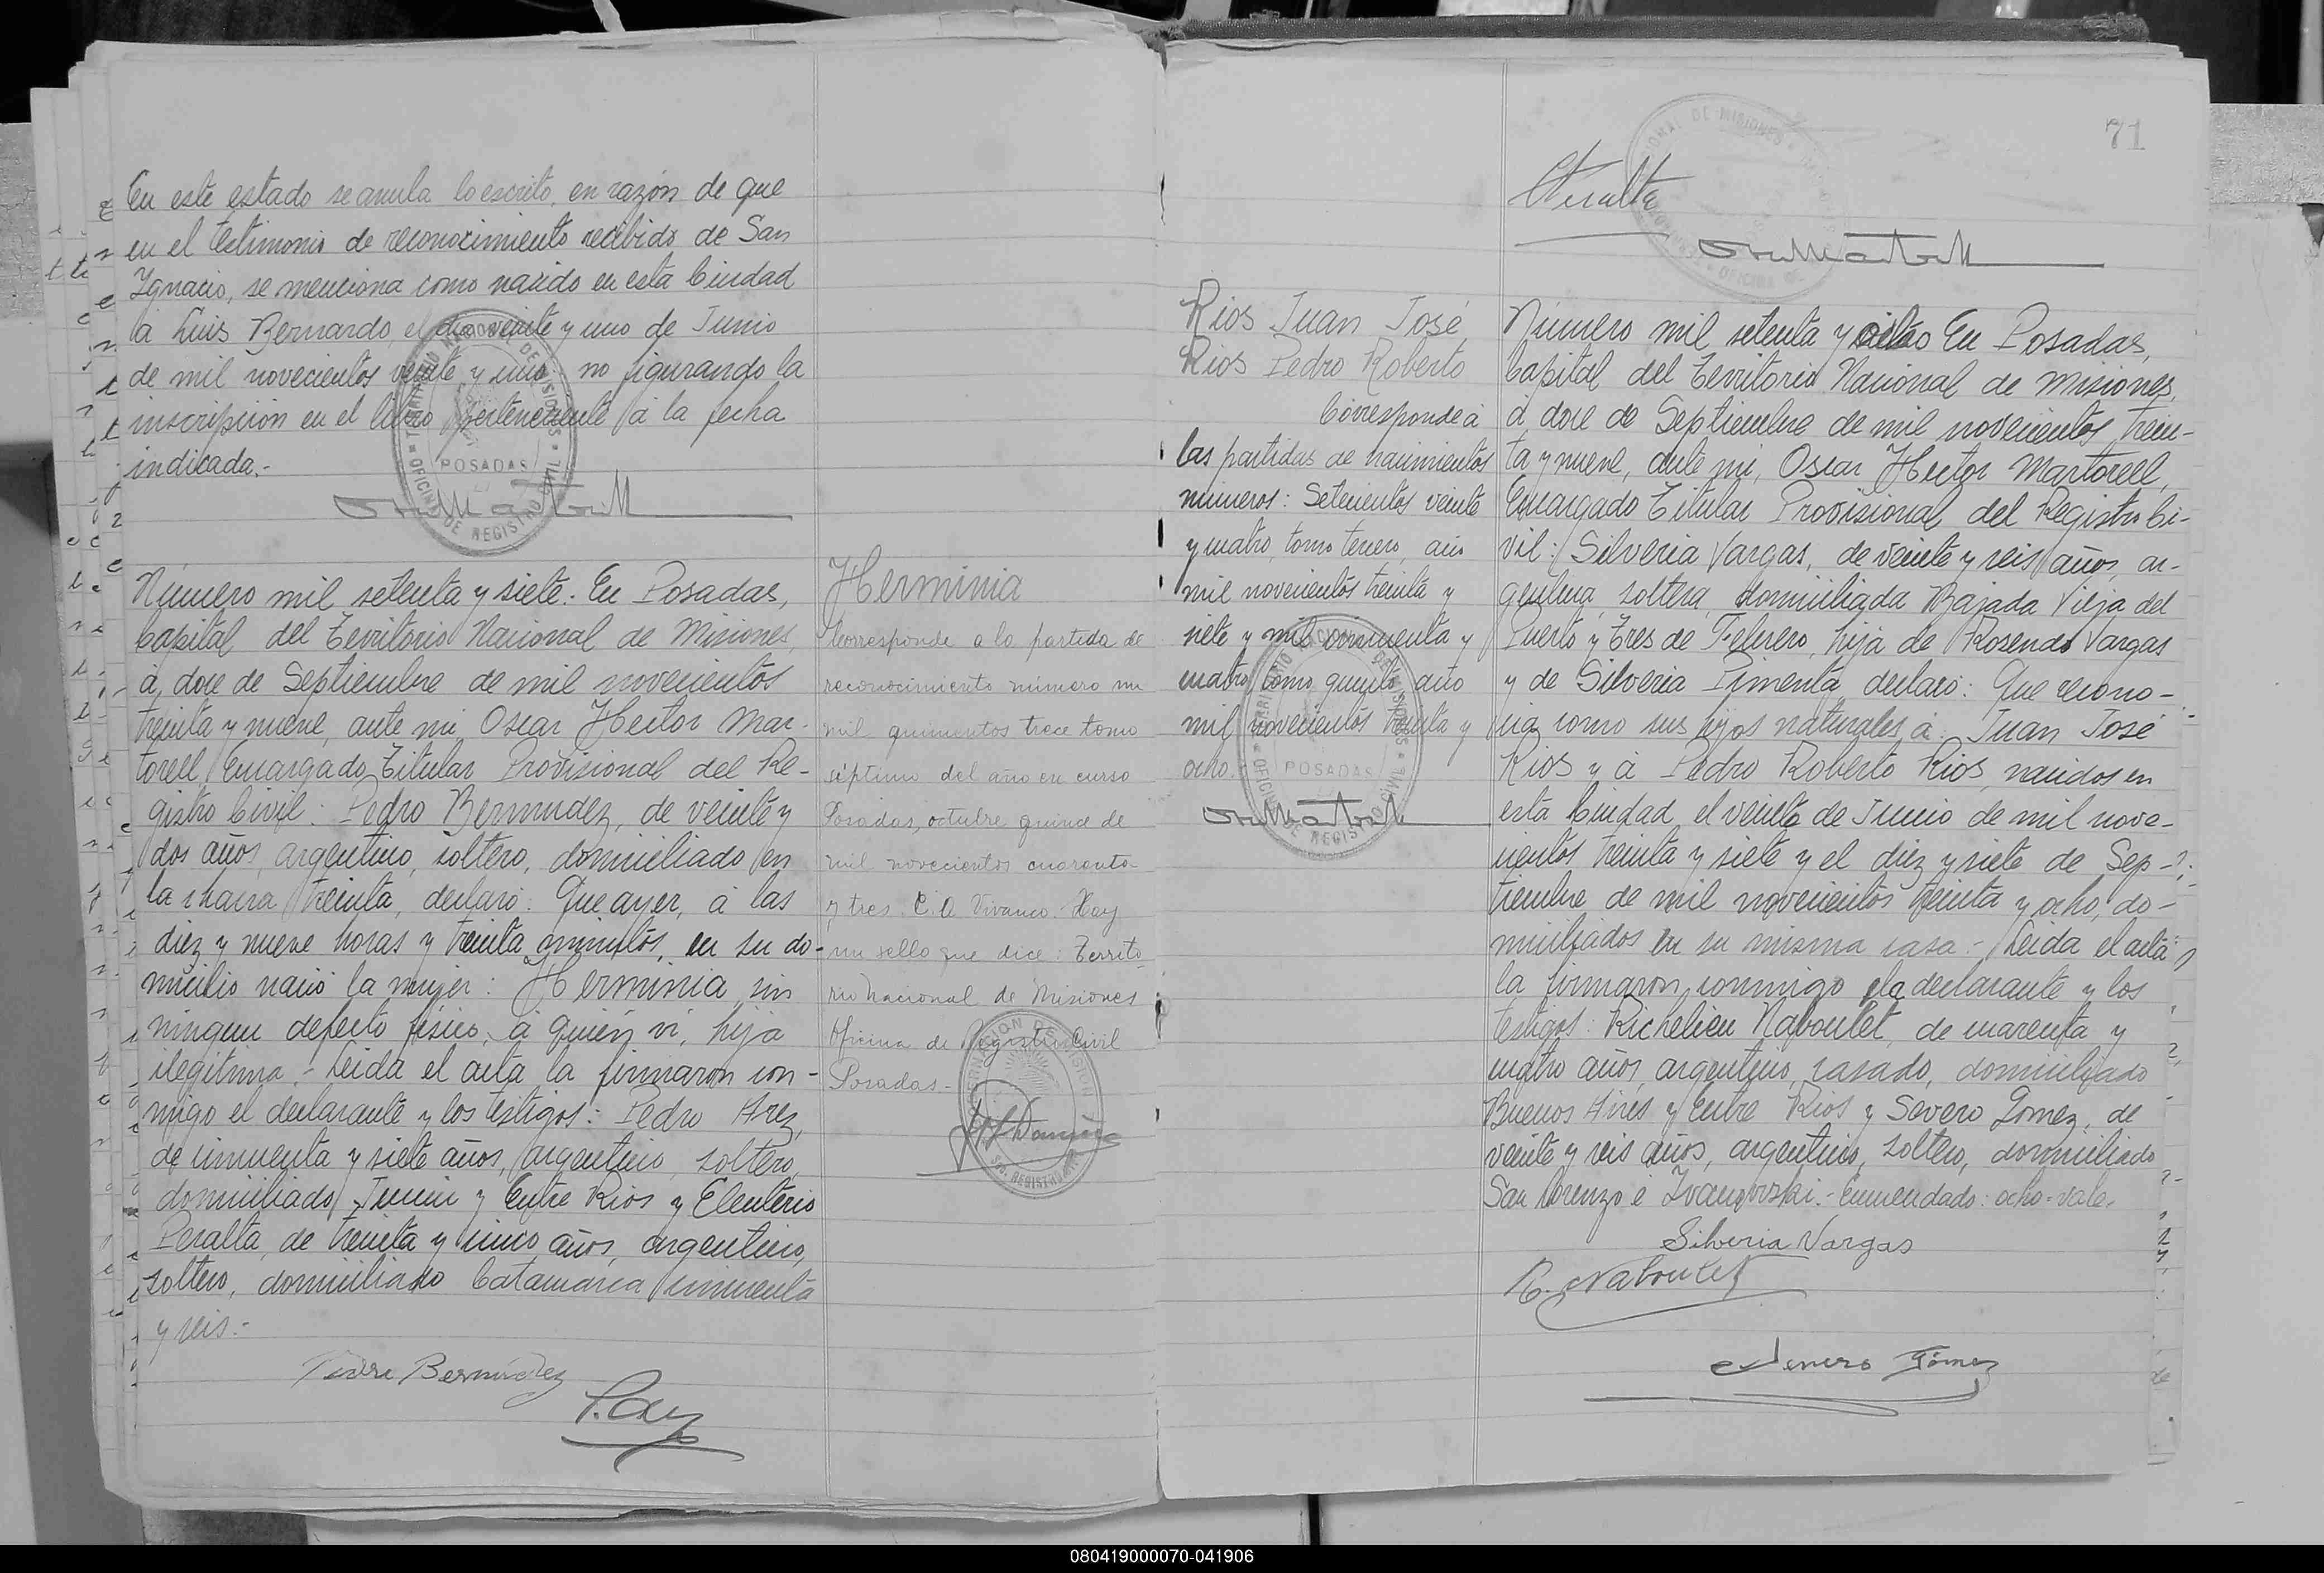 En este estado se anula lo escrito, en razón de que
en el testimonio de reconocimiento recibido de San
Ignacio, se menciona como nacido en esta Ciudad
á Luis Bernardo, el dia veinte y uno de Junio
de mil novecientos veinte y uno: no figurando la
inscripción en el libro perteneciente á la fecha
indicada.-
POSADAS
Número mil setenta y siete. En Posadas,
Capital del Territorio Nacional de Misiones,
á doce de Septiembre de mil novecientos
treinta y nueve, ante mi Oscar Hector Mar-
torell Encargado Titular Provisional del Re-
gistro Civil: Pedro Bermudez, de veinte y
dos años, argentino, soltero, domiciliado en
la chacra treinta, declaró: Que ayer, á las
diez y nueve horas y treinta minutos, en su do-
micilio nació la mujer: Herminia, sin
ningun defecto fisico, á quién vi, hija
ilegitima.- Leida el acta la firmaron con-
migo el declarante y los testigos: Pedro Arez,
de cincuenta y siete años, argentino, soltero,
domiciliado Junin y Entre Rios y Eleuterio
Peralta, de treinta y cinco años, argentino,
soltero, domiciliado Catamarca cincuenta
y seis.-
Pedro Bermúdez
Herminia
Corresponde a la partida de
reconocimiento número un
mil quinientos trece tomo
séptimo del año en curso
Posadas, octubre quince de
mil novecientos cuarenta
y tres. C. A. Vivanco. Hay
un sello que dice: Territo
rio Nacional de Misiones
Oficina de Registro Civil
Posadas.-
71
Peralta
Rios Juan José
Rios Pedro Roberto
Corresponde á
las partidas de nacimientos
números: Setecientos veinte
y cuatro, tomo tercero, año
mil novecientos treinta y
siete y mil cincuenta y
cuatro, tomo quinto año
mil novecientos treinta y
ocho.
POSADAS
Número mil setenta y ocho En Posadas,
Capital del Territorio Nacional de Misiones,
á doce de Septiembre de mil novecientos trein-
ta y nueve, ante mi, Oscar Hector Martorell,
Encargado Titular Provisional del Registro Ci-
vil: Silveria Vargas, de veinte y seis años, ar-
gentina, soltera, domiciliada Bajada Vieja del
Puerto y Tres de Febrero, hija de Rosendo Vargas
y de Silveria Pimenta, declaró: Que recono-
cia como sus hijos naturales, á: Juan José
Rios y á Pedro Roberto Rios, nacidos en
esta Ciudad, el veinte de Junio de mil nove-
cientos treinta y siete y el diez y siete de Sep-
tiembre de mil novecientos treinta y ocho, do-
miciliados en su misma casa.- Leida el acta
la firmaron conmigo la declarante y los
testigos: Richelieu Naboulet, de cuarenta y
cuatro años, argentino, casado, domiciliado
Buenos Aires y Entre Rios y Severo Gomez, de
veinte y seis años, argentino, soltero, domiciliado
San Lorenzo é Ivanowski.- Enmendado: ocho-vale.
Silveria Vargas
R. Naboulet
Severo Gómez
080419000070-041906